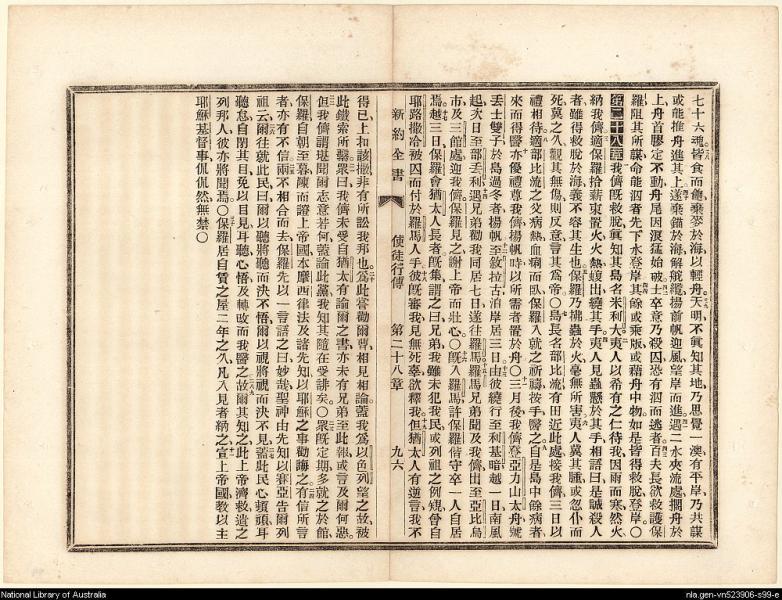 七十六魂皆食而飽棄麥於海以輕舟天明不眞知其地乃思覺一澳有平岸乃共謀
或能推舟進其上遂棄錨於海解舵纜揚前帆迎風望岸而進遇二水夾流處擱舟於
上舟首膠定不動舟尾因浪猛始破士卒意乃殺囚恐有泅而逃者百夫長欲救護保
羅阻其所謀命能泅者先下水登岸其餘或乘版或藉舟中物如是皆得救脫登岸〇
第二十八章我儕旣救脫眞知其島名米利大夷人以希有之仁待我因雨而寒然火
納我儕適保羅拾薪束置火火熱蝮出繞其手夷人見蟲懸於其手相語曰是誠殺人
者雖得救脫於海義不容其生也保羅乃拂蟲於火毫無所害夷人冀其腫或忽仆而
死冀之久觀其無傷則反意言其爲帝〇島長名部比流有田近此處接我儕三日以
禮相待適部比流之父病熱血痢而臥保羅入就之祈禱按手醫之自是島中餘病者
來而得醫亦優禮尊我儕揚帆時以所需者置於舟〇三月後我儕登亞力山太舟號
丟士雙子於島過冬者揚帆至敘拉古泊岸居三日由彼繞行至利基暗越一日南風
起次日至部丟利遇兄弟勸我同居七日遂往羅馬羅馬兄弟聞及我儕出至亞比烏
市及三館處迎我儕保羅見之謝上帝而壯心〇旣入羅馬許保羅偕守卒一人自居
焉越三日保羅會猶太人長者旣集謂之曰兄弟我雖未犯我民或列祖之例規曾自
耶路撒冷被囚而付於羅馬人手彼旣審我見無死辜欲釋我但猶太人有逆言我不
新約全書 使徒行傳 第二十八章 九六
得已上扣該撒非有所訟我邦也爲此嘗勸爾曹相見相論蓋我爲以色列望之故被
此鐵索所繫衆曰我儕未受自猶太有論爾之書亦未有兄弟至此報或言及爾何惡
但我儕謂堪聞爾志意若何蓋論此黨我知其隨在受誹矣〇衆旣定期多就之於館
保羅自朝至暮陳而證上帝國本摩西律法及諸先知以耶穌之事勸誨之有信所言
者亦有不信兩不相合而去保羅先以一言語之曰妙哉聖神由先知以賽亞告爾列
祖云爾往就此民曰爾以聽將聽而決不悟爾以視將視而決不見蓋此民心頑頭耳
聽怠自閉其目免以目見耳聽心悟及轉改而我醫之故爾其知之此上帝濟救遣之
列邦人彼亦將聞焉〇保羅居自賃之屋二年之久凡入見者納之宣上帝國教以主
耶穌基督事侃侃然無禁〇
National Library of Australia
nla.gen-vn523906-s99-e